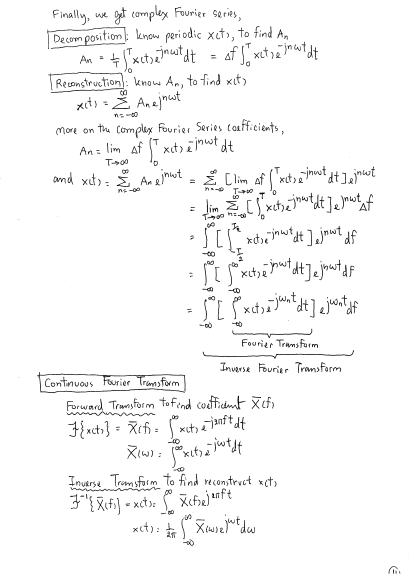 Finally, we get complex Fourier series,
Decomposition: know periodic x(t), to find An
An = 1/T ∫₀ᵀ x(t) e^{-jnωt} dt = Δf ∫₀ᵀ x(t) e^{-jnωt} dt
Reconstruction: know An, to find x(t)
x(t) = Σ_{n=-∞}^{∞} An e^{jnωt}
more on the Complex Fourier Series coefficients,
An = lim_{T→∞} Δf ∫₀ᵀ x(t) e^{-jnωt} dt
and x(t) = Σ_{n=-∞}^{∞} An e^{jnωt} = Σ_{n=-∞}^{∞} [lim_{T→∞} Δf ∫₀ᵀ x(t) e^{-jnωt} dt] e^{jnωt}
= lim_{T→∞} Σ_{n=-∞}^{∞} [∫₀ᵀ x(t) e^{-jnωt} dt] e^{jnωt} Δf
= ∫_{-∞}^{∞} [∫_{-T/2}^{T/2} x(t) e^{-jnωt} dt] e^{jnωt} df
= ∫_{-∞}^{∞} [∫_{-∞}^{∞} x(t) e^{-jnωt} dt] e^{jnωt} df
= ∫_{-∞}^{∞} [∫_{-∞}^{∞} x(t) e^{-jωₙt} dt] e^{jωₙt} df
Fourier Transform
Inverse Fourier Transform
Continuous Fourier Transform
Forward Transform to find coefficient X̄(f)
ℱ{x(t)} = X̄(f) = ∫_{-∞}^{∞} x(t) e^{-j2πft} dt
X̄(ω) = ∫_{-∞}^{∞} x(t) e^{-jωt} dt
Inverse Transform to find reconstruct x(t)
ℱ⁻¹{X̄(f)} = x(t) = ∫_{-∞}^{∞} X̄(f) e^{j2πft}
x(t) = 1/2π ∫_{-∞}^{∞} X̄(ω) e^{jωt} dω